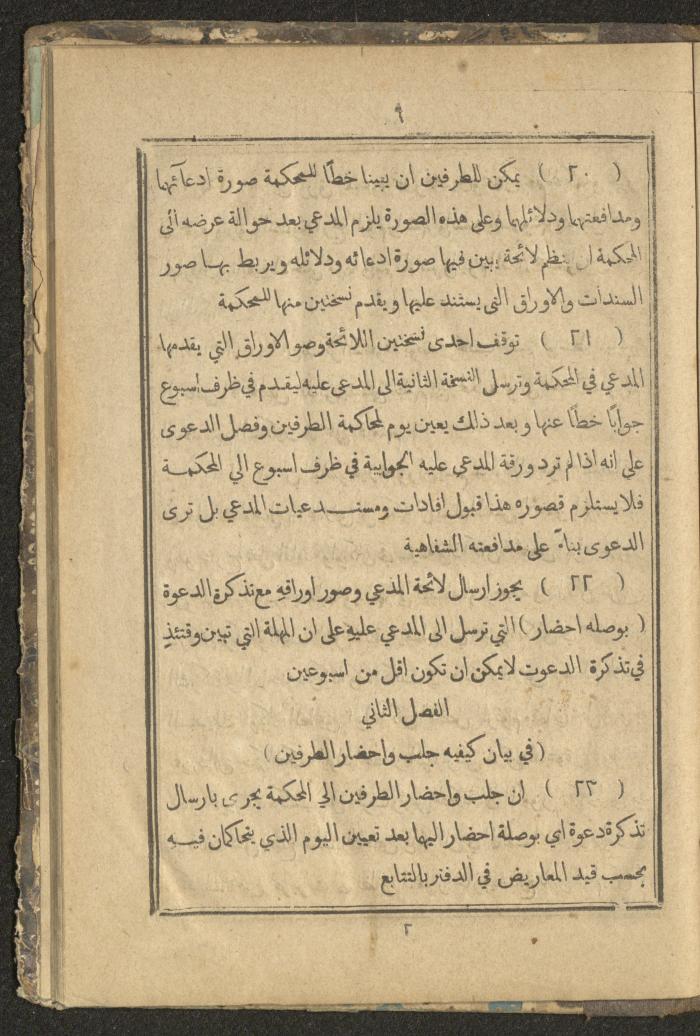 ٩
( ٢٠ ) يمكن للطرفين ان يبينا خطاً للمحكمة صورة ادعآئهما
ومدافعتهما ودلائلهما وعلى هذه الصورة يلزم المدعي بعد حوالة عرضه الى
المحكمة ان ينظم لائحة يبين فيها صورة ادعائه ودلائله ويربط بها صور
السندات والاوراق التي يستند عليها ويقدم نسختين منها للمحكمة
( ٢١ ) توقف احدى نسختين اللائحة وصو الاوراق التي يقدمها
المدعي في المحكمة وترسل النسخة الثانية الى المدعى عليه ليقدم في ظرف اسبوع
جواباً خطاً عنها وبعد ذلك يعين يوم لمحاكمة الطرفين وفصل الدعوى
على انه اذا لم ترد ورقة المدعي عليه الجوابية في ظرف اسبوع الي المحكمة
فلا يستلزم قصوره هذا قبول افادات ومستدعيات المدعي بل ترى
الدعوى بناءً على مدافعته الشفاهية
( ٢٢ ) يجوز ارسال لائحة المدعي وصور اوراقهِ مع تذكرة الدعوة
( بوصله احضار ) التي ترسل الى المدعي عليهِ على ان المهلة التي تبين وقتئذٍ
في تذكرة الدعوت لا يمكن ان تكون اقل من اسبوعين
الفصل الثاني
( في بيان كيفيه جلب واحضار الطرفين )
( ٢٣ ) ان جلب واحضار الطرفين الي المحكمة يجرى بارسال
تذكرة دعوة اي بوصلة احضار اليها بعد تعيين اليوم الذي يتحاكمان فيه
بحسب قيد المعاريض في الدفتر بالتتابع
٢